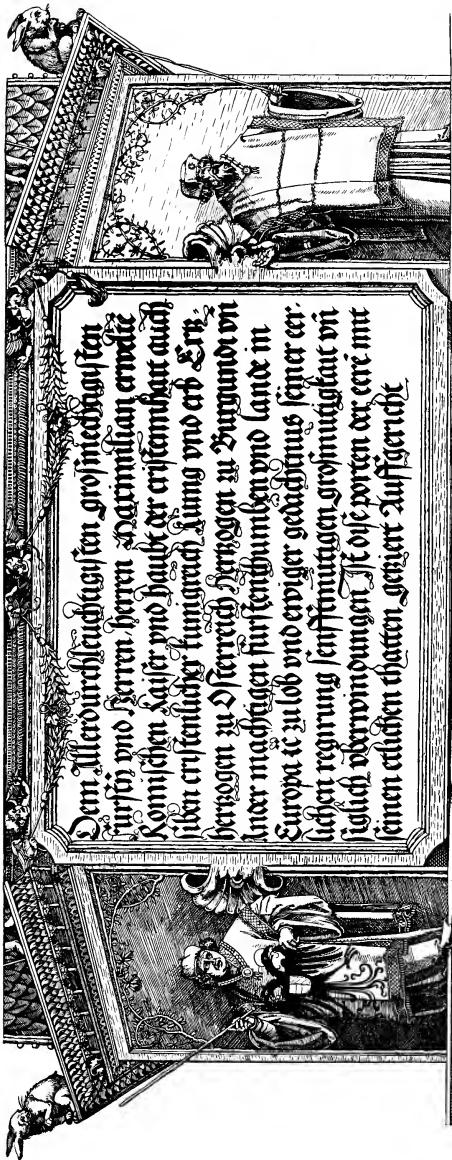 Dem Allerdurchleuchtigisten großmechtigisten
fursten vnd Herren herren Maximilian erwelte
Römischen Kaiser vnd haubt der cristennhait auch
siben cristenlicher kunigreich kung vnd erb Ertz-
hertzogen zu Osterreich hertzogen zu Burgundi vn̄
Ander mächtigen furstenthumben vnd lande in
Europa ic zu lob vnd ewiger gedächtnus seiner eer-
lichen regirung senfftmutigen großmutigkait vn̄
siglich vberwindungen Ist dise porten der eere mit
seinen etlichen thatten getziert Auffgericht